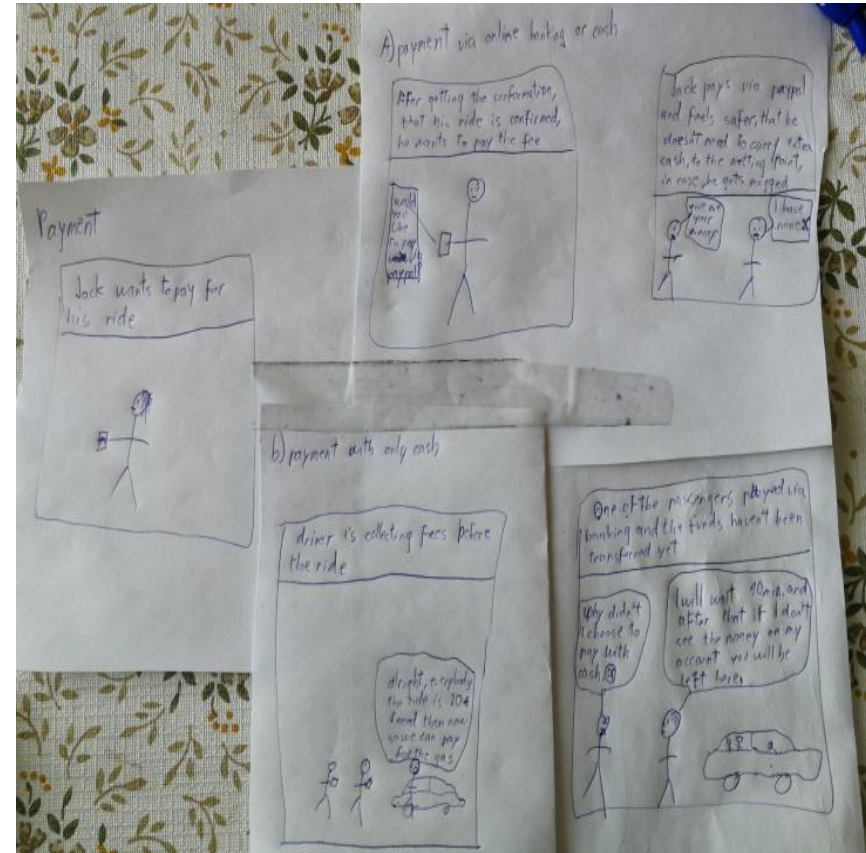 Payment
Jack wants to pay for
his ride
A) payment via online banking or cash
After getting the conformation,
that his ride is confirmed,
he wants to pay the fee
would
you
like
to pay
via
paypal
Jack pays via paypal
and feels safer, that he
doesn't need to carry extra
cash, to the meeting point,
in case, he gets mugged
give me
your
money
I have
none
b) payment with only cash
driver is collecting fees before
the ride
alright, everybody
the ride is 20€
I need them now
so we can pay
for the gas
One of the passengers payed via
banking and the funds haven't been
transferred yet
Why didn't
I choose to
pay with
cash
I will wait 10min. and
after that if I don't
see the money on my
account you will be
left here.